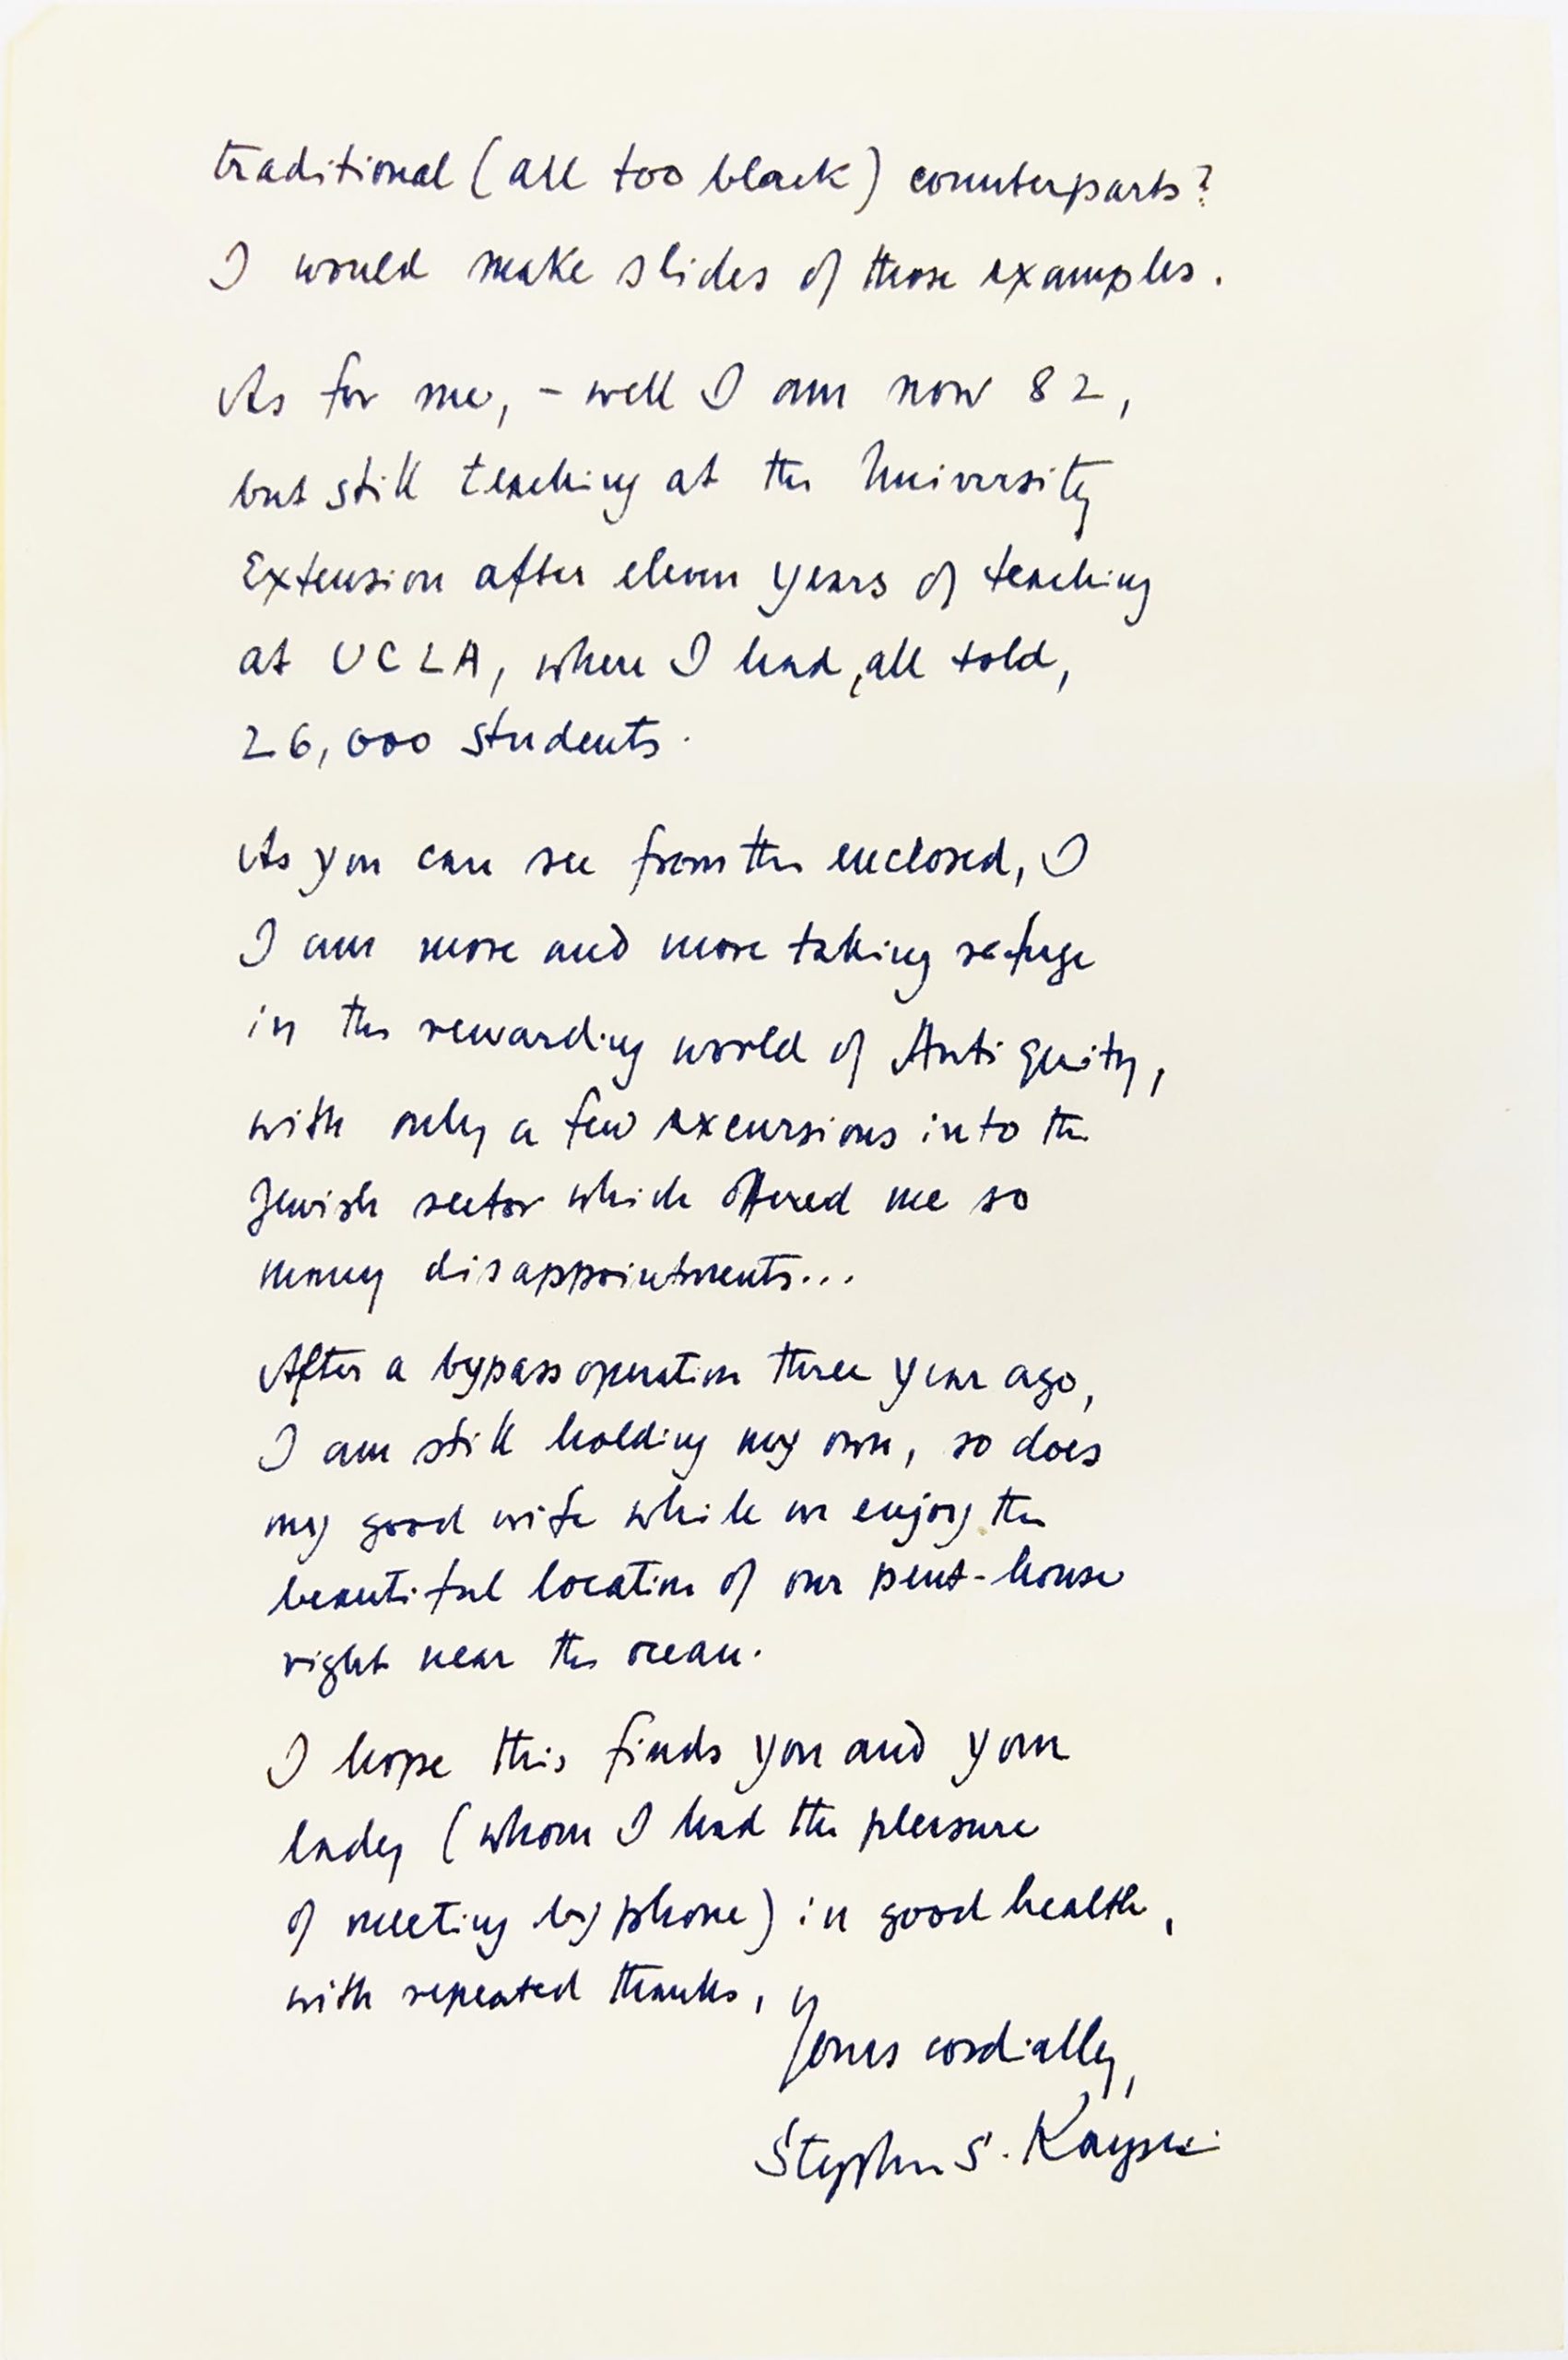 traditional (all too black) counterparts?
I would make slides of those examples.
As for me, – well I am now 82,
but still teaching at the University
Extension after eleven years of teaching
at UCLA, where I had, all told,
26,000 students.
As you can see from the enclosed, I
I am more and more taking refuge
in the rewarding world of Antiquity,
with only a few excursions into the
Jewish sector which offered me so
many disappointments...
After a bypass operation three year ago,
I am still holding my own, so does
my good wife while we enjoy the
beautiful location of our pent-house
right near the ocean.
I hope this finds you and your
lady (whom I had the pleasure
of meeting by phone) in good health,
with repeated thanks,
Yours cordially,
Stephen S. Kayser